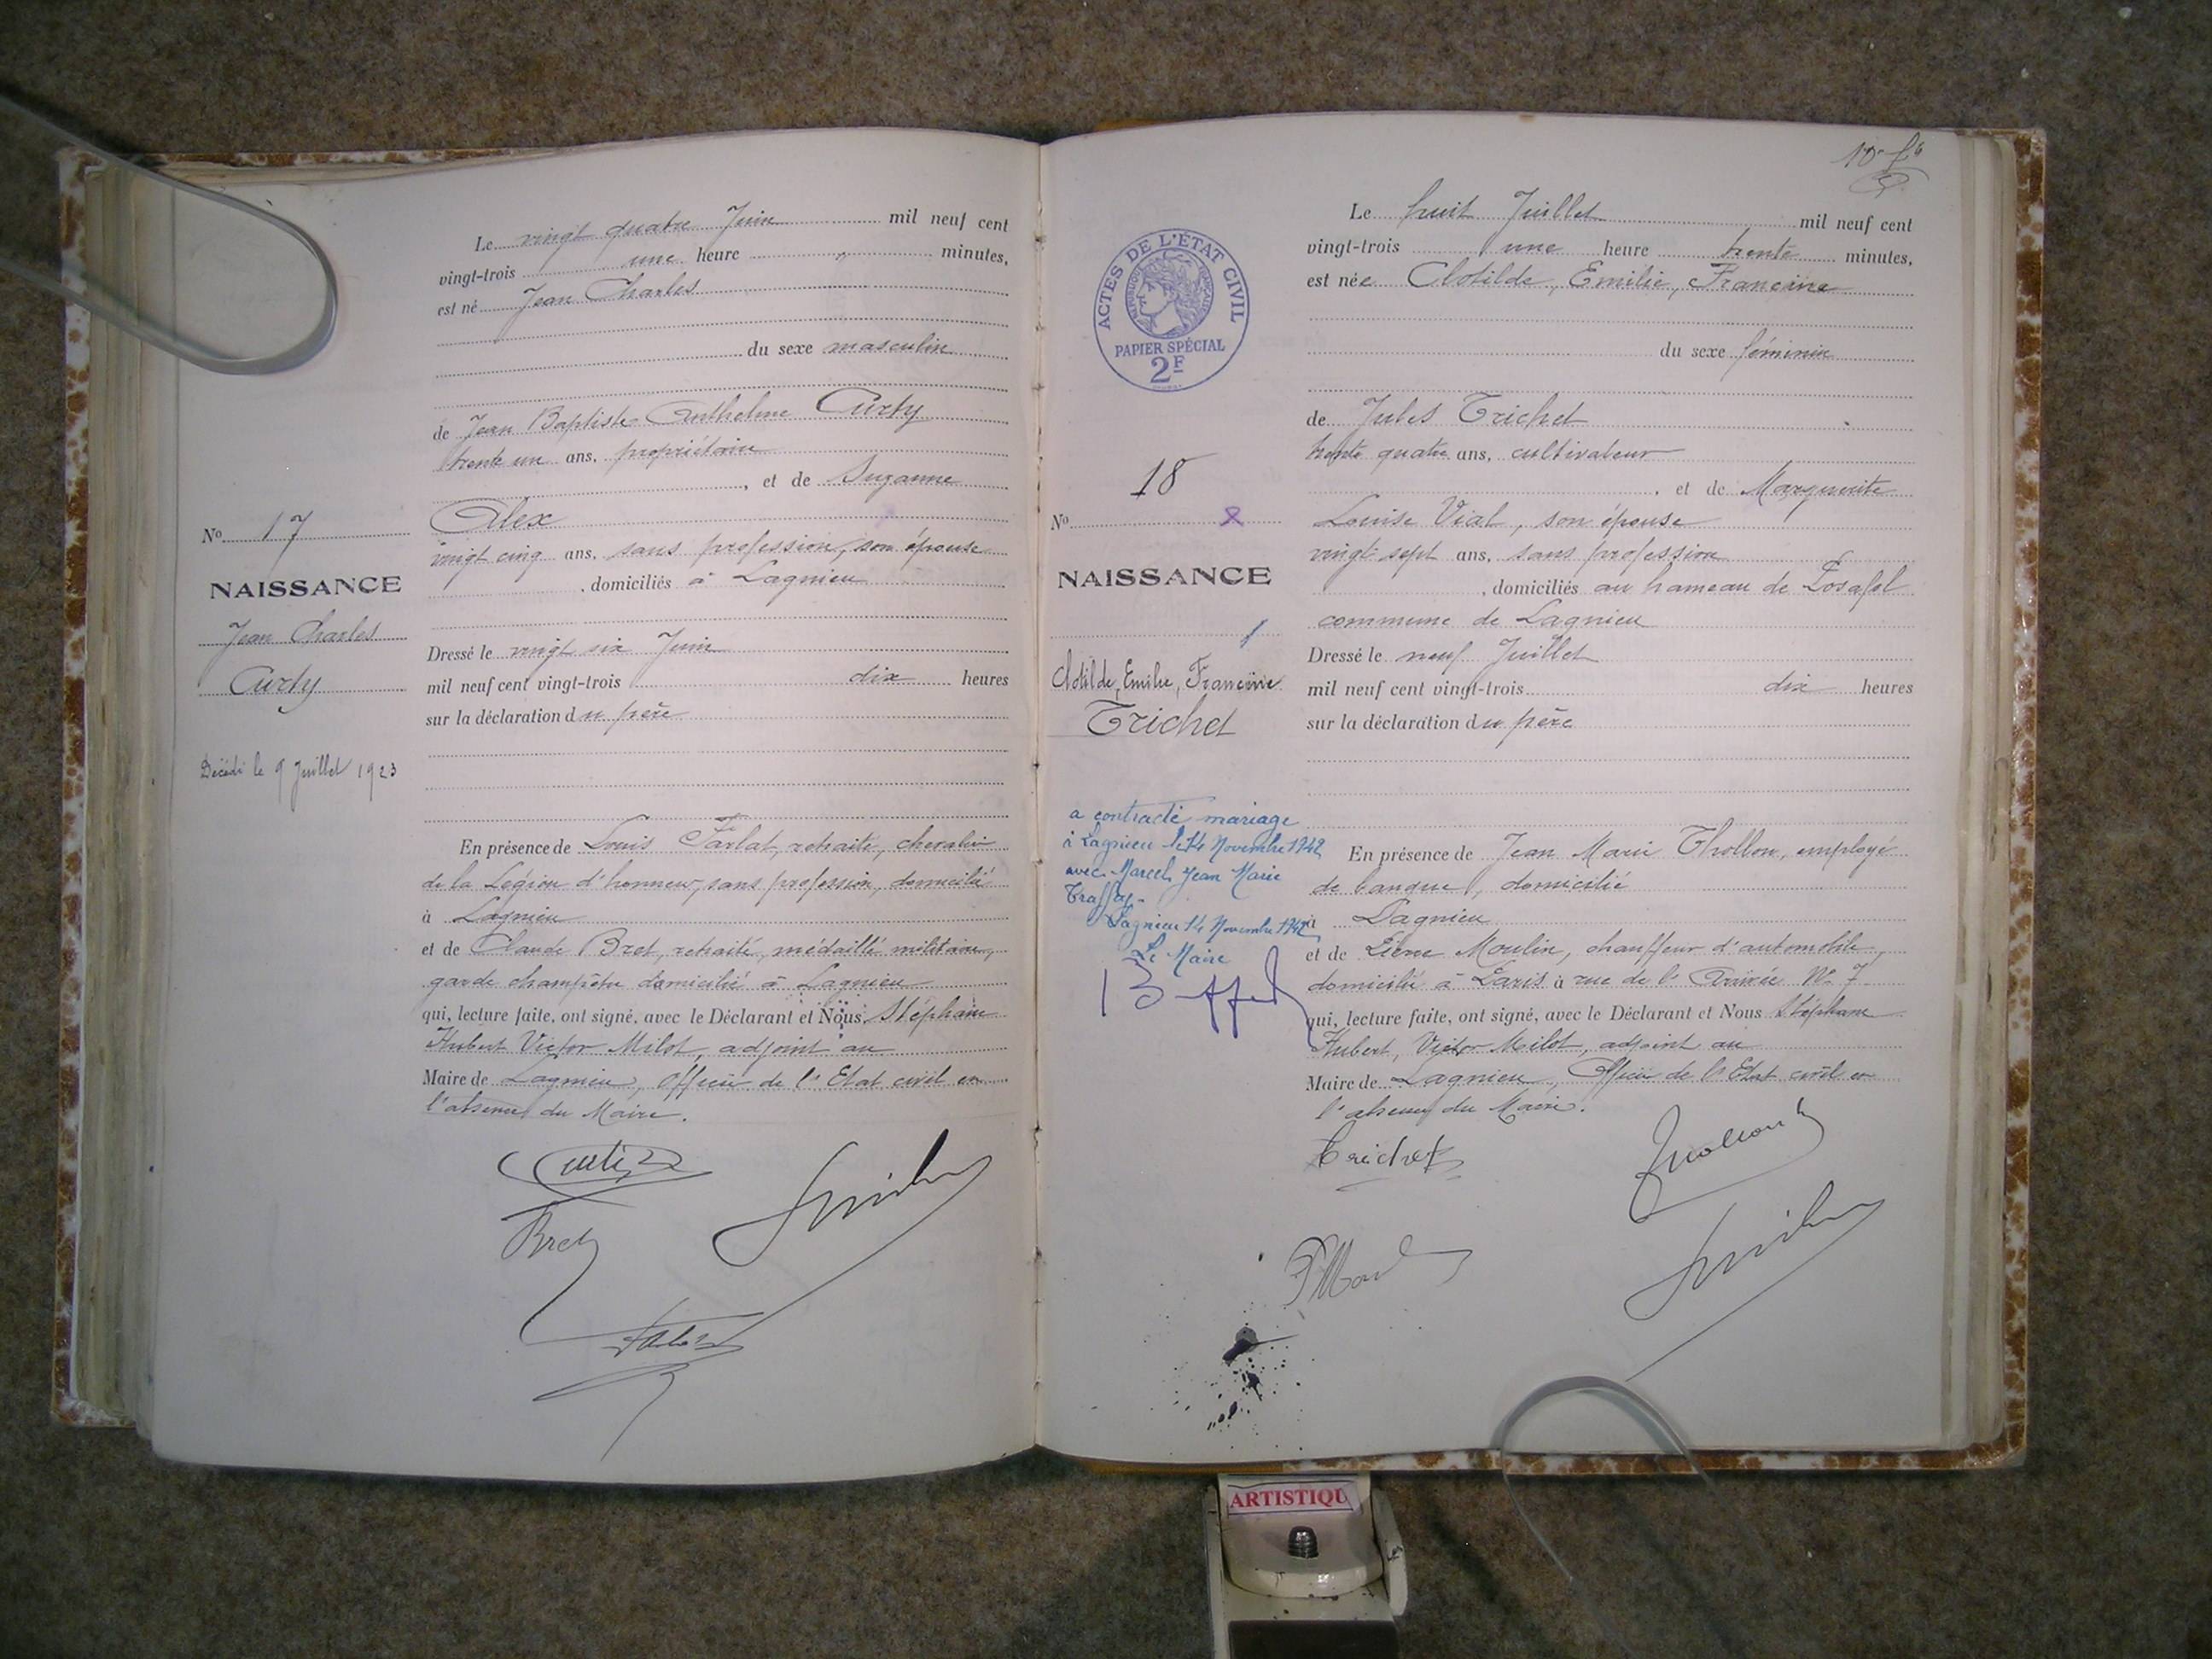 Le vingt quatre Juin mil neuf cent
vingt-trois une heure " minutes,
est né Jean Charles
du sexe masculin
de Jean Baptiste Anthelme Curty
trente un ans, propriétaire
, et de Suzanne
Alex
vingt cinq ans, sans profession, son épouse
, domiciliés à Lagnieu
Dressé le vingt six Juin
mil neuf cent vingt-trois dix heures
sur la déclaration du père
En présence de Louis Farlat, retraité, chevalier
de la Légion d'honneur, sans profession, domicilié
à Lagnieu
et de Claude Bret, retraité, médaillé militaire,
garde champêtre domicilié à Lagnieu
qui, lecture faite, ont signé, avec le Déclarant et Nous, Stéphane
Hubert Victor Milot, adjoint au
Maire de Lagnieu, Officier de l'Etat civil en
l'absence du Maire.
Bret
No 17
NAISSANCE
Jean Charles
Curty
Décédé le 9 Juillet 1923
ACTES DE L'ÉTAT CIVIL
RÉPUBLIQUE FRANÇAISE
PAPIER SPÉCIAL
2F
18
No
NAISSANCE
Clotilde, Emilie, Francine
Trichet
a contracté mariage
à Lagnieu le 14 Novembre 1942
avec Marcel Jean Marie
Lagnieu 14 Novembre 1942
Le Maire
Le huit Juillet mil neuf cent
vingt-trois une heure trente minutes,
est née Clotilde, Emilie, Francine
du sexe féminin
de Jules Trichet
trente quatre ans, cultivateur
, et de Marguerite
Louise Vial, son épouse
vingt-sept ans, sans profession
, domiciliés au hameau de Posafol
commune de Lagnieu
Dressé le neuf Juillet
mil neuf cent vingt-trois dix heures
sur la déclaration du père
En présence de Jean Marie Thollon, employé
de banque, domicilié
à Lagnieu
et de Pierre Moulin, chauffeur d'automobile,
domicilié à Paris à rue de l'Arrivée No 7
qui, lecture faite, ont signé, avec le Déclarant et Nous Stéphane
Hubert, Victor Milot, adjoint au
Maire de Lagnieu, Officier de l'Etat civil en
l'absence du Maire.
Trichet
ARTISTIQU